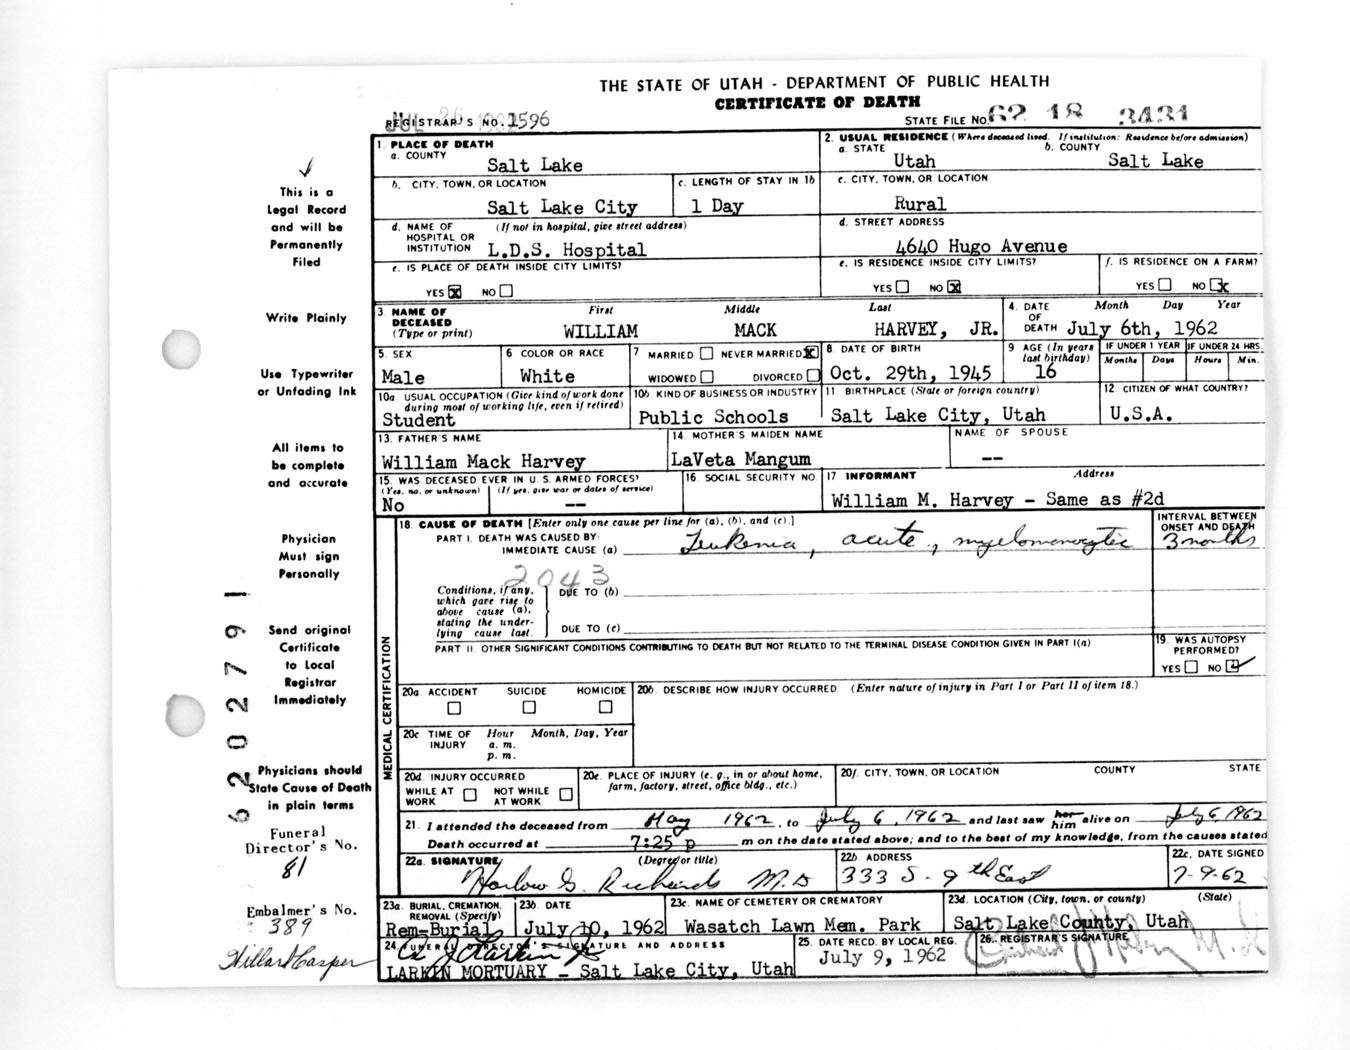 THE STATE OF UTAH - DEPARTMENT OF PUBLIC HEALTH
CERTIFICATE OF DEATH
JUL 26
REGISTRAR'S NO. 1596
STATE FILE NO. 62 18 3431
This is a
Legal Record
and will be
Permanently
Filed
Write Plainly
Use Typewriter
or Unfading Ink
All items to
be complete
and accurate
Physician
Must sign
Personally
Send original
Certificate
to Local
Registrar
Immediately
Physicians should
State Cause of Death
in plain terms
Funeral
Director's No.
81
Embalmer's No.
389
6202791
1. PLACE OF DEATH
a. COUNTY
Salt Lake
2. USUAL RESIDENCE (Where deceased lived. If institution: Residence before admission)
a. STATE
Utah
b. COUNTY
Salt Lake
b. CITY, TOWN, OR LOCATION
Salt Lake City
c. LENGTH OF STAY IN 1b
1 Day
c. CITY, TOWN, OR LOCATION
Rural
d. NAME OF HOSPITAL OR INSTITUTION
(If not in hospital, give street address)
L.D.S. Hospital
d. STREET ADDRESS
4640 Hugo Avenue
e. IS PLACE OF DEATH INSIDE CITY LIMITS?
YES X NO
e. IS RESIDENCE INSIDE CITY LIMITS?
YES NO X
f. IS RESIDENCE ON A FARM?
YES NO X
3 NAME OF DECEASED (Type or print)
First Middle Last
WILLIAM MACK HARVEY, JR.
4. DATE OF DEATH
Month Day Year
July 6th, 1962
5. SEX
Male
6 COLOR OR RACE
White
7 MARRIED NEVER MARRIED X
WIDOWED DIVORCED
8 DATE OF BIRTH
Oct. 29th, 1945
9 AGE (In years last birthday)
16
IF UNDER 1 YEAR
Months Days
IF UNDER 24 HRS.
Hours Min.
10a. USUAL OCCUPATION (Give kind of work done during most of working life, even if retired)
Student
10b KIND OF BUSINESS OR INDUSTRY
Public Schools
11 BIRTHPLACE (State or foreign country)
Salt Lake City, Utah
12 CITIZEN OF WHAT COUNTRY?
U.S.A.
13. FATHER'S NAME
William Mack Harvey
14 MOTHER'S MAIDEN NAME
LaVeta Mangum
NAME OF SPOUSE
--
15. WAS DECEASED EVER IN U.S. ARMED FORCES?
(Yes, no. or unknown) (If yes, give war or dates of service)
No --
16 SOCIAL SECURITY NO
17 INFORMANT Address
William M. Harvey - Same as #2d
MEDICAL CERTIFICATION
18. CAUSE OF DEATH [Enter only one cause per line for (a), (b), and (c).]
INTERVAL BETWEEN ONSET AND DEATH
PART I. DEATH WAS CAUSED BY:
IMMEDIATE CAUSE (a) Leukemia, acute, myelomonocytic
3 months
2043
Conditions, if any, which gave rise to above cause (a), stating the underlying cause last.
DUE TO (b)
DUE TO (c)
PART II. OTHER SIGNIFICANT CONDITIONS CONTRIBUTING TO DEATH BUT NOT RELATED TO THE TERMINAL DISEASE CONDITION GIVEN IN PART I(a)
19. WAS AUTOPSY PERFORMED?
YES NO ✓
20a. ACCIDENT SUICIDE HOMICIDE
20b. DESCRIBE HOW INJURY OCCURRED. (Enter nature of injury in Part I or Part II of item 18.)
20c. TIME OF INJURY
Hour Month, Day, Year
a. m.
p. m.
20d. INJURY OCCURRED
WHILE AT WORK NOT WHILE AT WORK
20e. PLACE OF INJURY (e. g., in or about home, farm, factory, street, office bldg., etc.)
20f. CITY, TOWN, OR LOCATION COUNTY STATE
21. I attended the deceased from May 1962, to July 6, 1962 and last saw her him alive on July 6 1962
Death occurred at 7:25 p m on the date stated above; and to the best of my knowledge, from the causes stated
22a. SIGNATURE (Degree or title)
Harlow G. Richards M.D
22b. ADDRESS
333 S. 9th East
22c. DATE SIGNED
7-9-62
23a. BURIAL, CREMATION, REMOVAL (Specify)
Rem-Burial
23b. DATE
July 10, 1962
23c. NAME OF CEMETERY OR CREMATORY
Wasatch Lawn Mem. Park
23d. LOCATION (City, town, or county) (State)
Salt Lake County, Utah
24. FUNERAL DIRECTOR'S SIGNATURE AND ADDRESS
LARKIN MORTUARY - Salt Lake City, Utah
25. DATE RECD. BY LOCAL REG.
July 9, 1962
26. REGISTRAR'S SIGNATURE